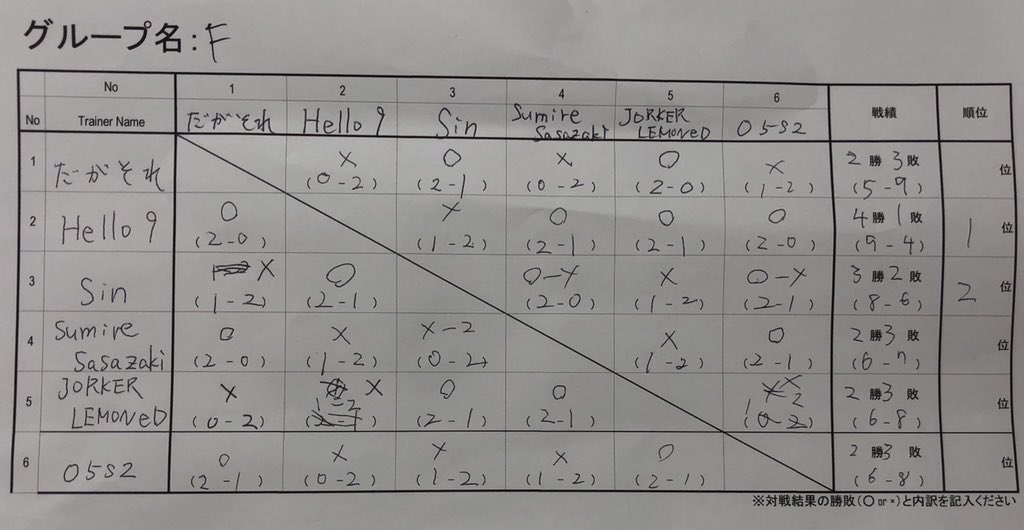 グループ名:F
No 1 2 3 4 5 6 戦績 順位
No Trainer Name だがそれ Hello 9 Sin Sumire Sasazaki JORKER LEMONeD O5S2
1 だがそれ × ○ × ○ × 2勝3敗 位
(0-2) (2-1) (0-2) (2-0) (1-2) (5-7)
2 Hello 9 ○ × ○ ○ ○ 4勝1敗 1位
(2-0) (1-2) (2-1) (2-1) (2-0) (9-4)
3 Sin × ○ ○-× × ○-× 3勝2敗 2位
(1-2) (2-1) (2-0) (1-2) (2-1) (8-6)
4 Sumire Sasazaki ○ × ×-2 × ○ 2勝3敗 位
(2-0) (1-2) (0-2) (1-2) (2-1) (6-7)
5 JORKER LEMONeD × × ○ ○ × 2勝3敗 位
(0-2) 1-2 (2-1) (2-1) 1-2 (6-8)
6 O5S2 ○ × × × ○ 2勝3敗 位
(2-1) (0-2) (1-2) (1-2) (2-1) (6-8)
※対戦結果の勝敗(○or×)と内訳を記入ください